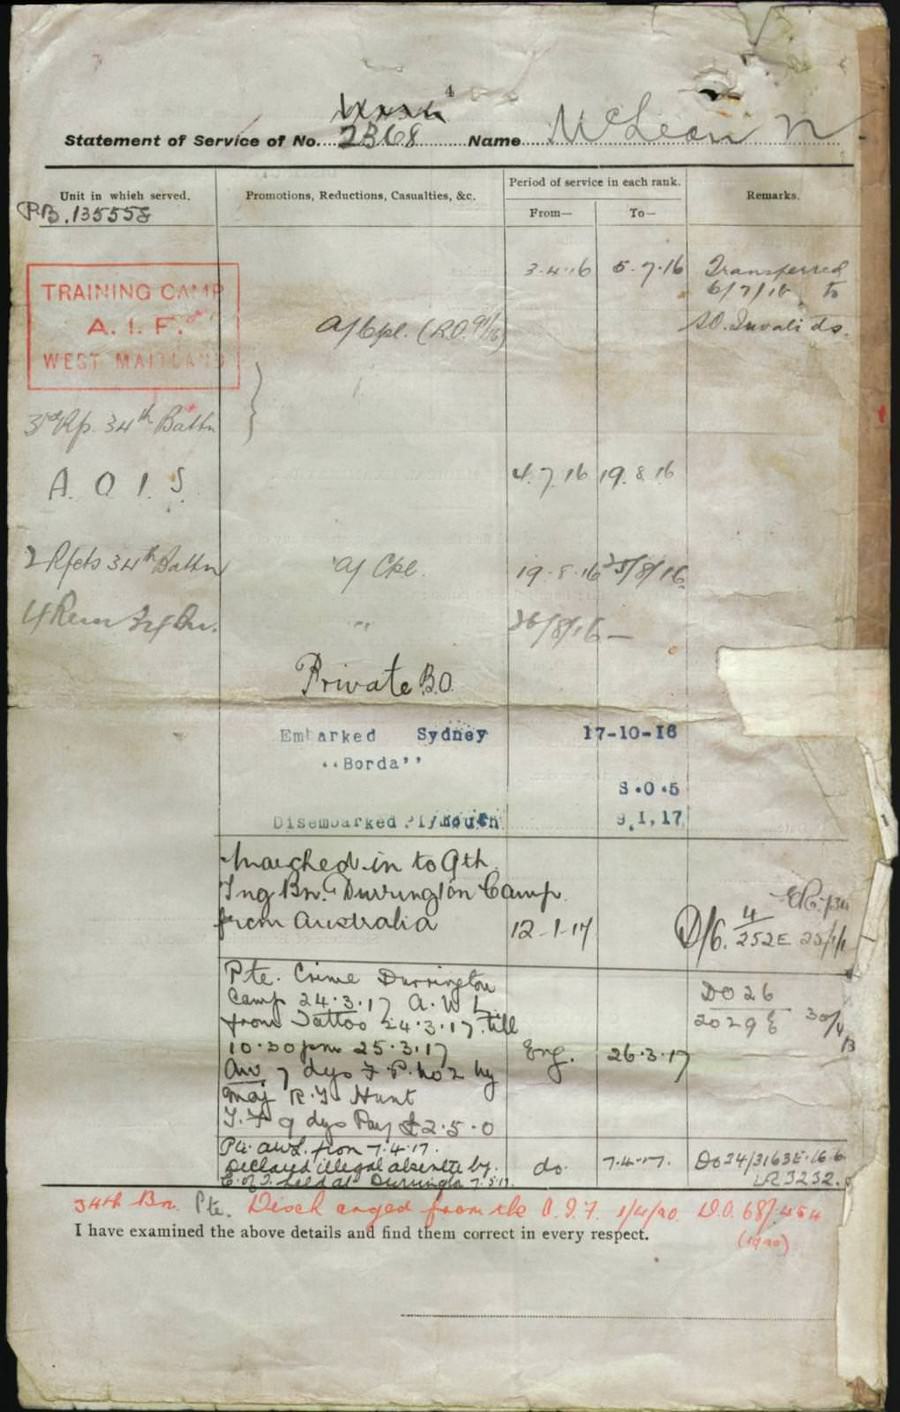 4
Statement of Service of No. 2368 Name McLean N.
Unit in which served.
Promotions, Reductions, Casualties, &c.
Period of service in each rank.
From—
To—
Remarks.
PB.13555
3.4.16 5.7.16 Transferred
6/7/16 to
TRAINING CAMP
A. I. F.
WEST MAITLAND
A/Cpl. (R.O. 9/16)
Invalids.
34th Battn
4.7.16 19.8.16
2 Rfcts 34th Battn A/Cpl. 19.8.16 25/8/16
4 34 Bn. " 26/8/16 —
Private B.O.
Embarked Sydney 17-10-16
"Borda"
S.O.5
Disembarked Plymouth 9.1.17
Marched in to 9th
Tng Bn. Durrington Camp
from Australia 12-1-17 D/6. 4/252E
Pte. Crime Durrington
Camp 24.3.17 A.W.L
from Tattoo 24.3.17 till
10.30 pm 25.3.17 Eng. 26.3.17
DO 26
2029E 30/4
Aw. 7 dys F.P. No 2 by
Maj R.J. Hunt
T.F 9 dys Pay £2.5.0
Pte. awl. from 7.4.17. do. 7.4.17. Do 34/3163E.16.6
Declared illegal absentee by
C. of I. held at Durrington 7.5.17.
34th Bn. Pte. Discharged from the A.I.F. 1/4/20. D.O. 68/
(1920)
I have examined the above details and find them correct in every respect.